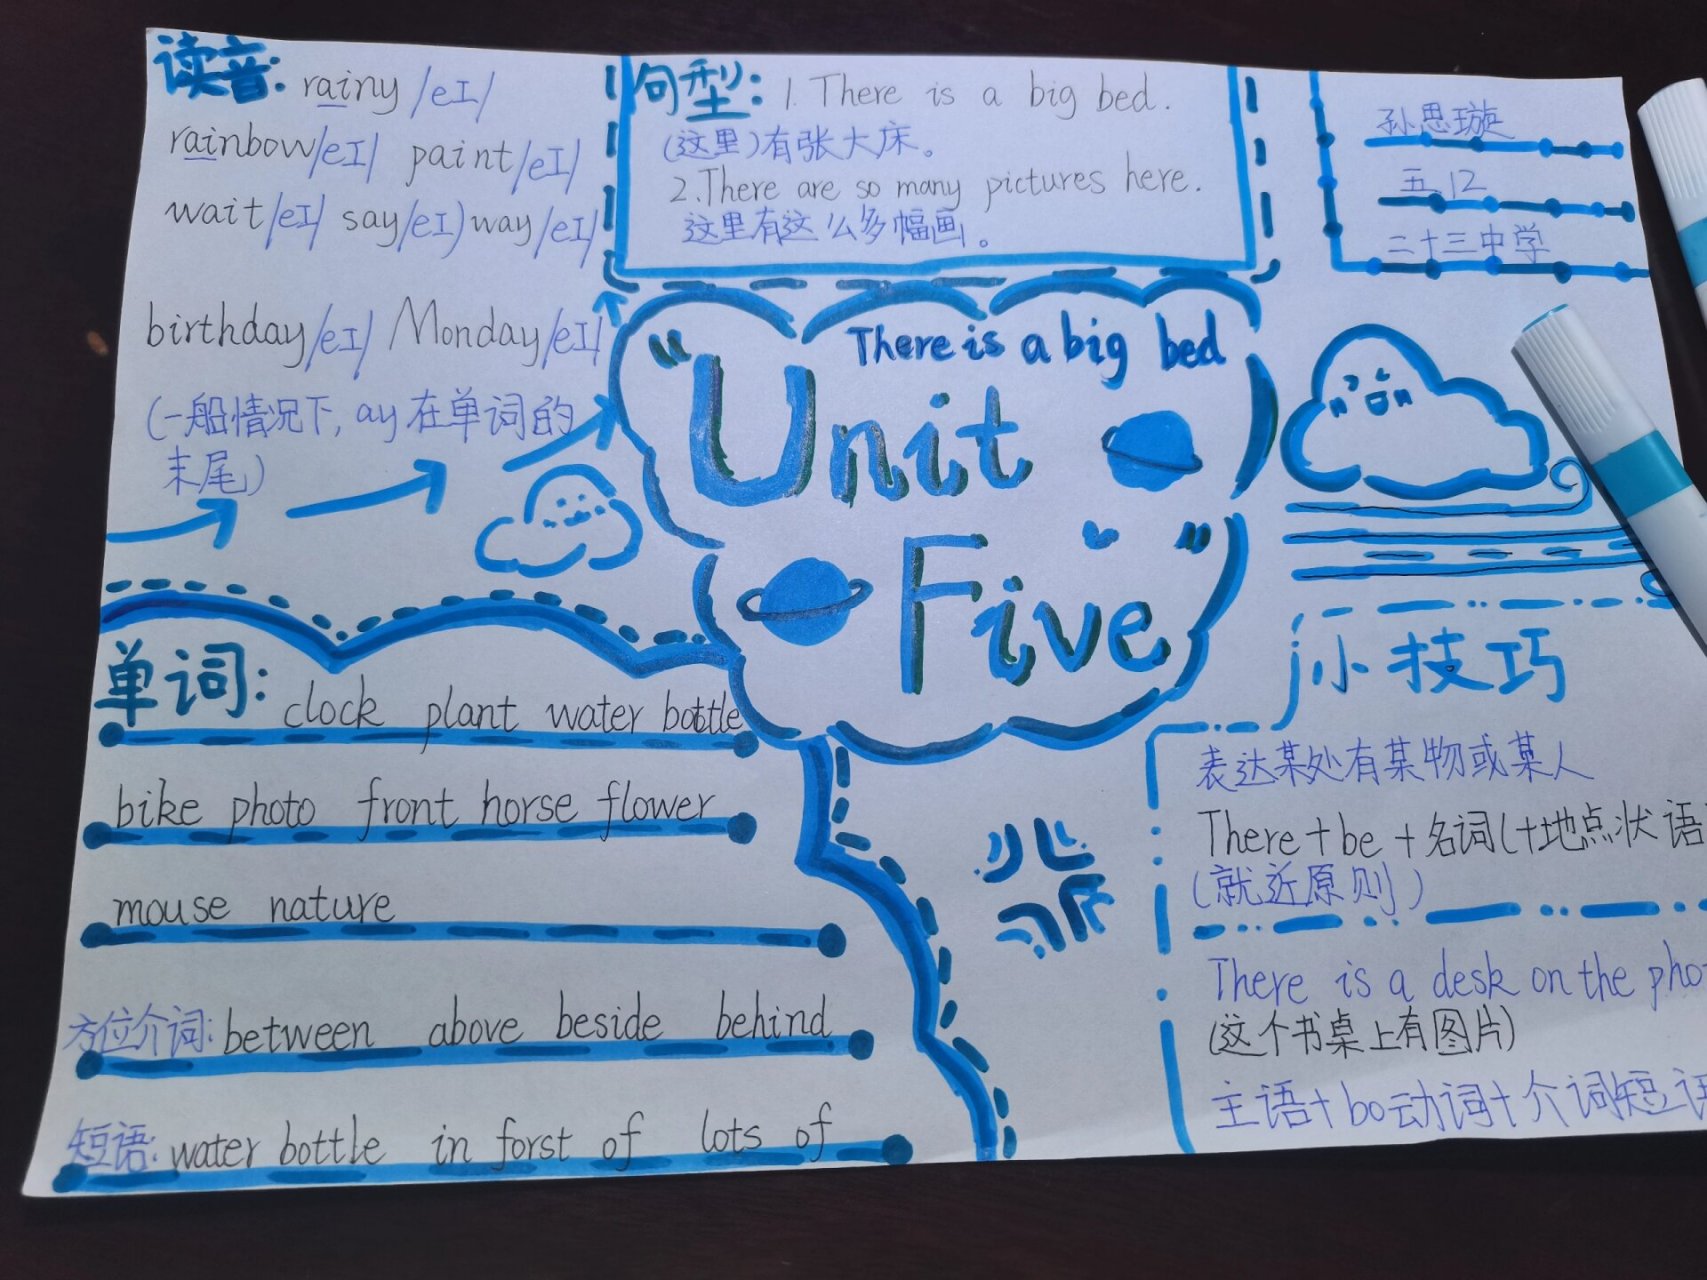 读音: rainy /eI/
rainbow/eI/ paint/eI/
wait/eI/ say/eI) way/eI/
birthday/eI/ Monday/eI/
(一般情况下, ay在单词的
末尾)
句型: 1. There is a big bed.
(这里)有张大床。
2.There are so many pictures here.
这里有这么多幅画。
孙思璇
五 12
二十三中学
There is a big bed
“Unit
Five”
单词: clock plant water bottle
bike photo front horse flower
mouse nature
方位介词: between above beside behind
短语: water bottle in forst of lots of
小技巧
表达某处有某物或某人
There+be+名词(+地点状语
(就近原则)
There is a desk on the pho
(这个书桌上有图片)
主语+bo动词+介词短语